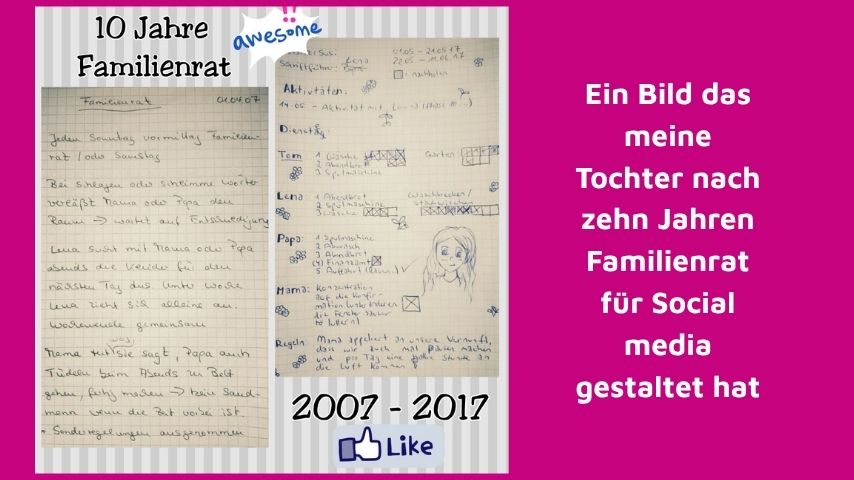 10 Jahre
Familienrat
awesome!!
Familienrat 01.04.07
Jeden Sonntag vormittag Familien-
rat / oder Samstag
Bei schlagen oder schlimme Wörter
verläßt Mama oder Papa den
Raum → wartet auf Entschuldigung
Lena sucht mit Mama oder Papa
abends die Kleider für den
nächsten Tag aus. Unter Woche
Lena zieht sich alleine an.
Wochenende gemeinsam
was
Mama tut Sie sagt, Papa auch
Trödeln beim Abends ins Bett
gehen, fertig machen → kein Sand-
mann wenn die Zeit vorbei ist.
* Sonderregelungen ausgenommen
01.05 - 21.05 17
Sanftführer: Lena 22.05 - 11.06 17
= nachholen
Aktivitäten:
14.05 - Aktivität mit
Dienste
Tom 1 Wäsche Garten
2 Abendbrot
3 Spülmaschine
Lena: 1 Abendbrot Waschbecken/
2 Spülmaschine Staubwischen
3 Wäsche
Papa: 1 Spülmaschine
2 Abwasch
3 Abendbrot
(4) Finanzamt
5 Auffahrt
Mama: Konzentration
auf die Konfir-
mation
die Fenster
Regeln Mama appeliert an unsere Vernunft,
dass wir auch mal Pausen machen
und pro Tag eine halbe Stunde an
die Luft kommen!
2007 - 2017
Like
Ein Bild das
meine
Tochter nach
zehn Jahren
Familienrat
für Social
media
gestaltet hat